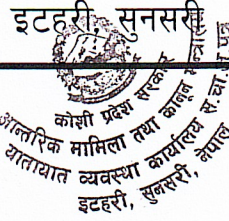 इटहरी, सुनसरी
कोशी प्रदेश सरकार
आन्तरिक मामिला तथा कानून मन्त्रालय
यातायात व्यवस्था कार्यालय स.चा.
इटहरी, सुनसरी, नेपाल